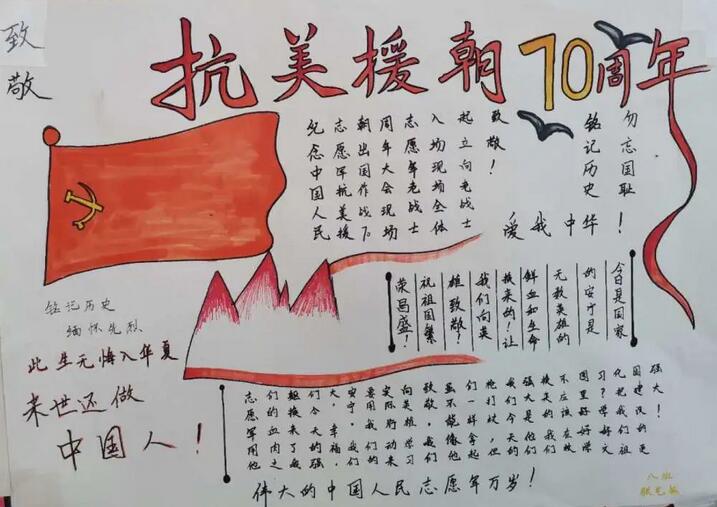 致敬
抗美援朝70周年
纪念中国人民
志愿军抗美援
朝出国作战70
周年大会现场
志愿军老战士
入场现场全体
起立向老战士
致敬!
勿忘国耻
铭记历史
爱我中华!
今日是国家
的安宁是
无数英雄的
鲜血和生命
换来的!让
我们向英
雄致敬!
祝祖国繁
荣昌盛!
铭记历史
缅怀先烈
此生无悔入华夏
来世还做
中国人!
志愿军用他
们的血肉之
躯换来了我
们今天的强
大,幸福,
安宁,我们
要用我们的
实际行动来
向英雄学习
致敬,我们
虽不能像他
们一样拿起
枪打仗,但
我们今天的
强大是他们
换来的我们
不应该
国里好好学
习?学好文
化把我们祖
国建设的更
强大!
伟大的中国人民志愿军万岁!
八班